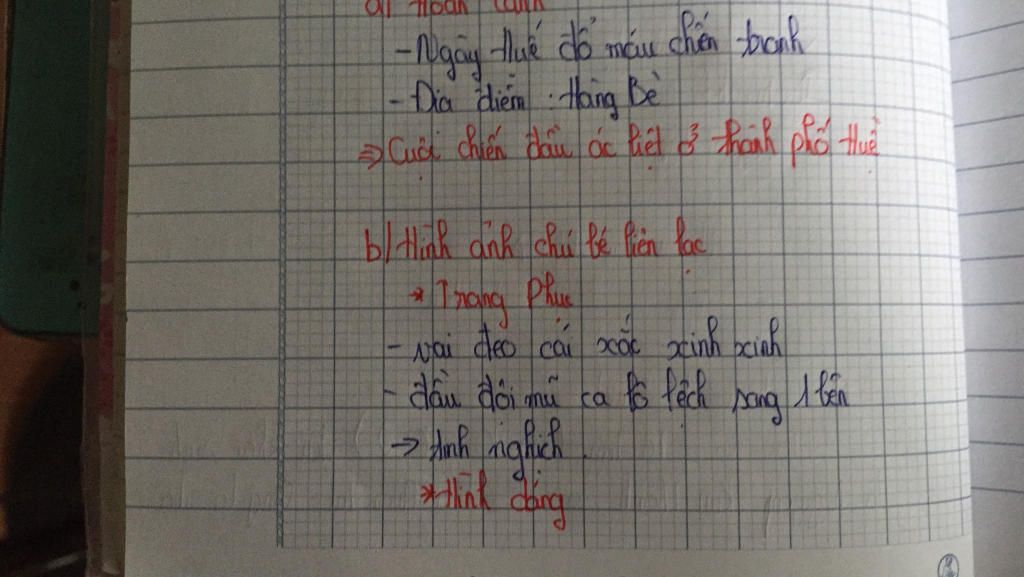 a) Hoàn cảnh
- Ngày Huế đổ máu chiến tranh
- Địa điểm : Hàng Bè
⇒ Cuộc chiến đấu ác liệt ở thành phố Huế
b) Hình ảnh chú bé liên lạc
* Trang phục
- vai đeo cái xắc xinh xinh
- đầu đội mũ ca lô lệch sang 1 bên
→ tinh nghịch.
* Hình dáng